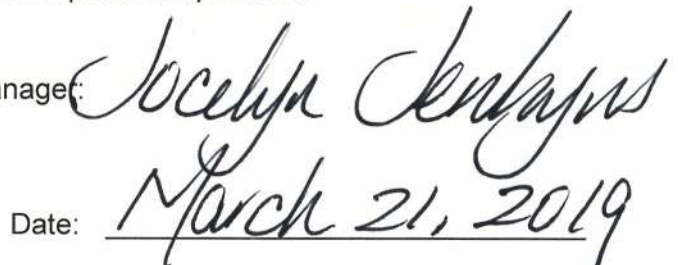 anager: Jocelyn Jenkyns
Date: March 21, 2019